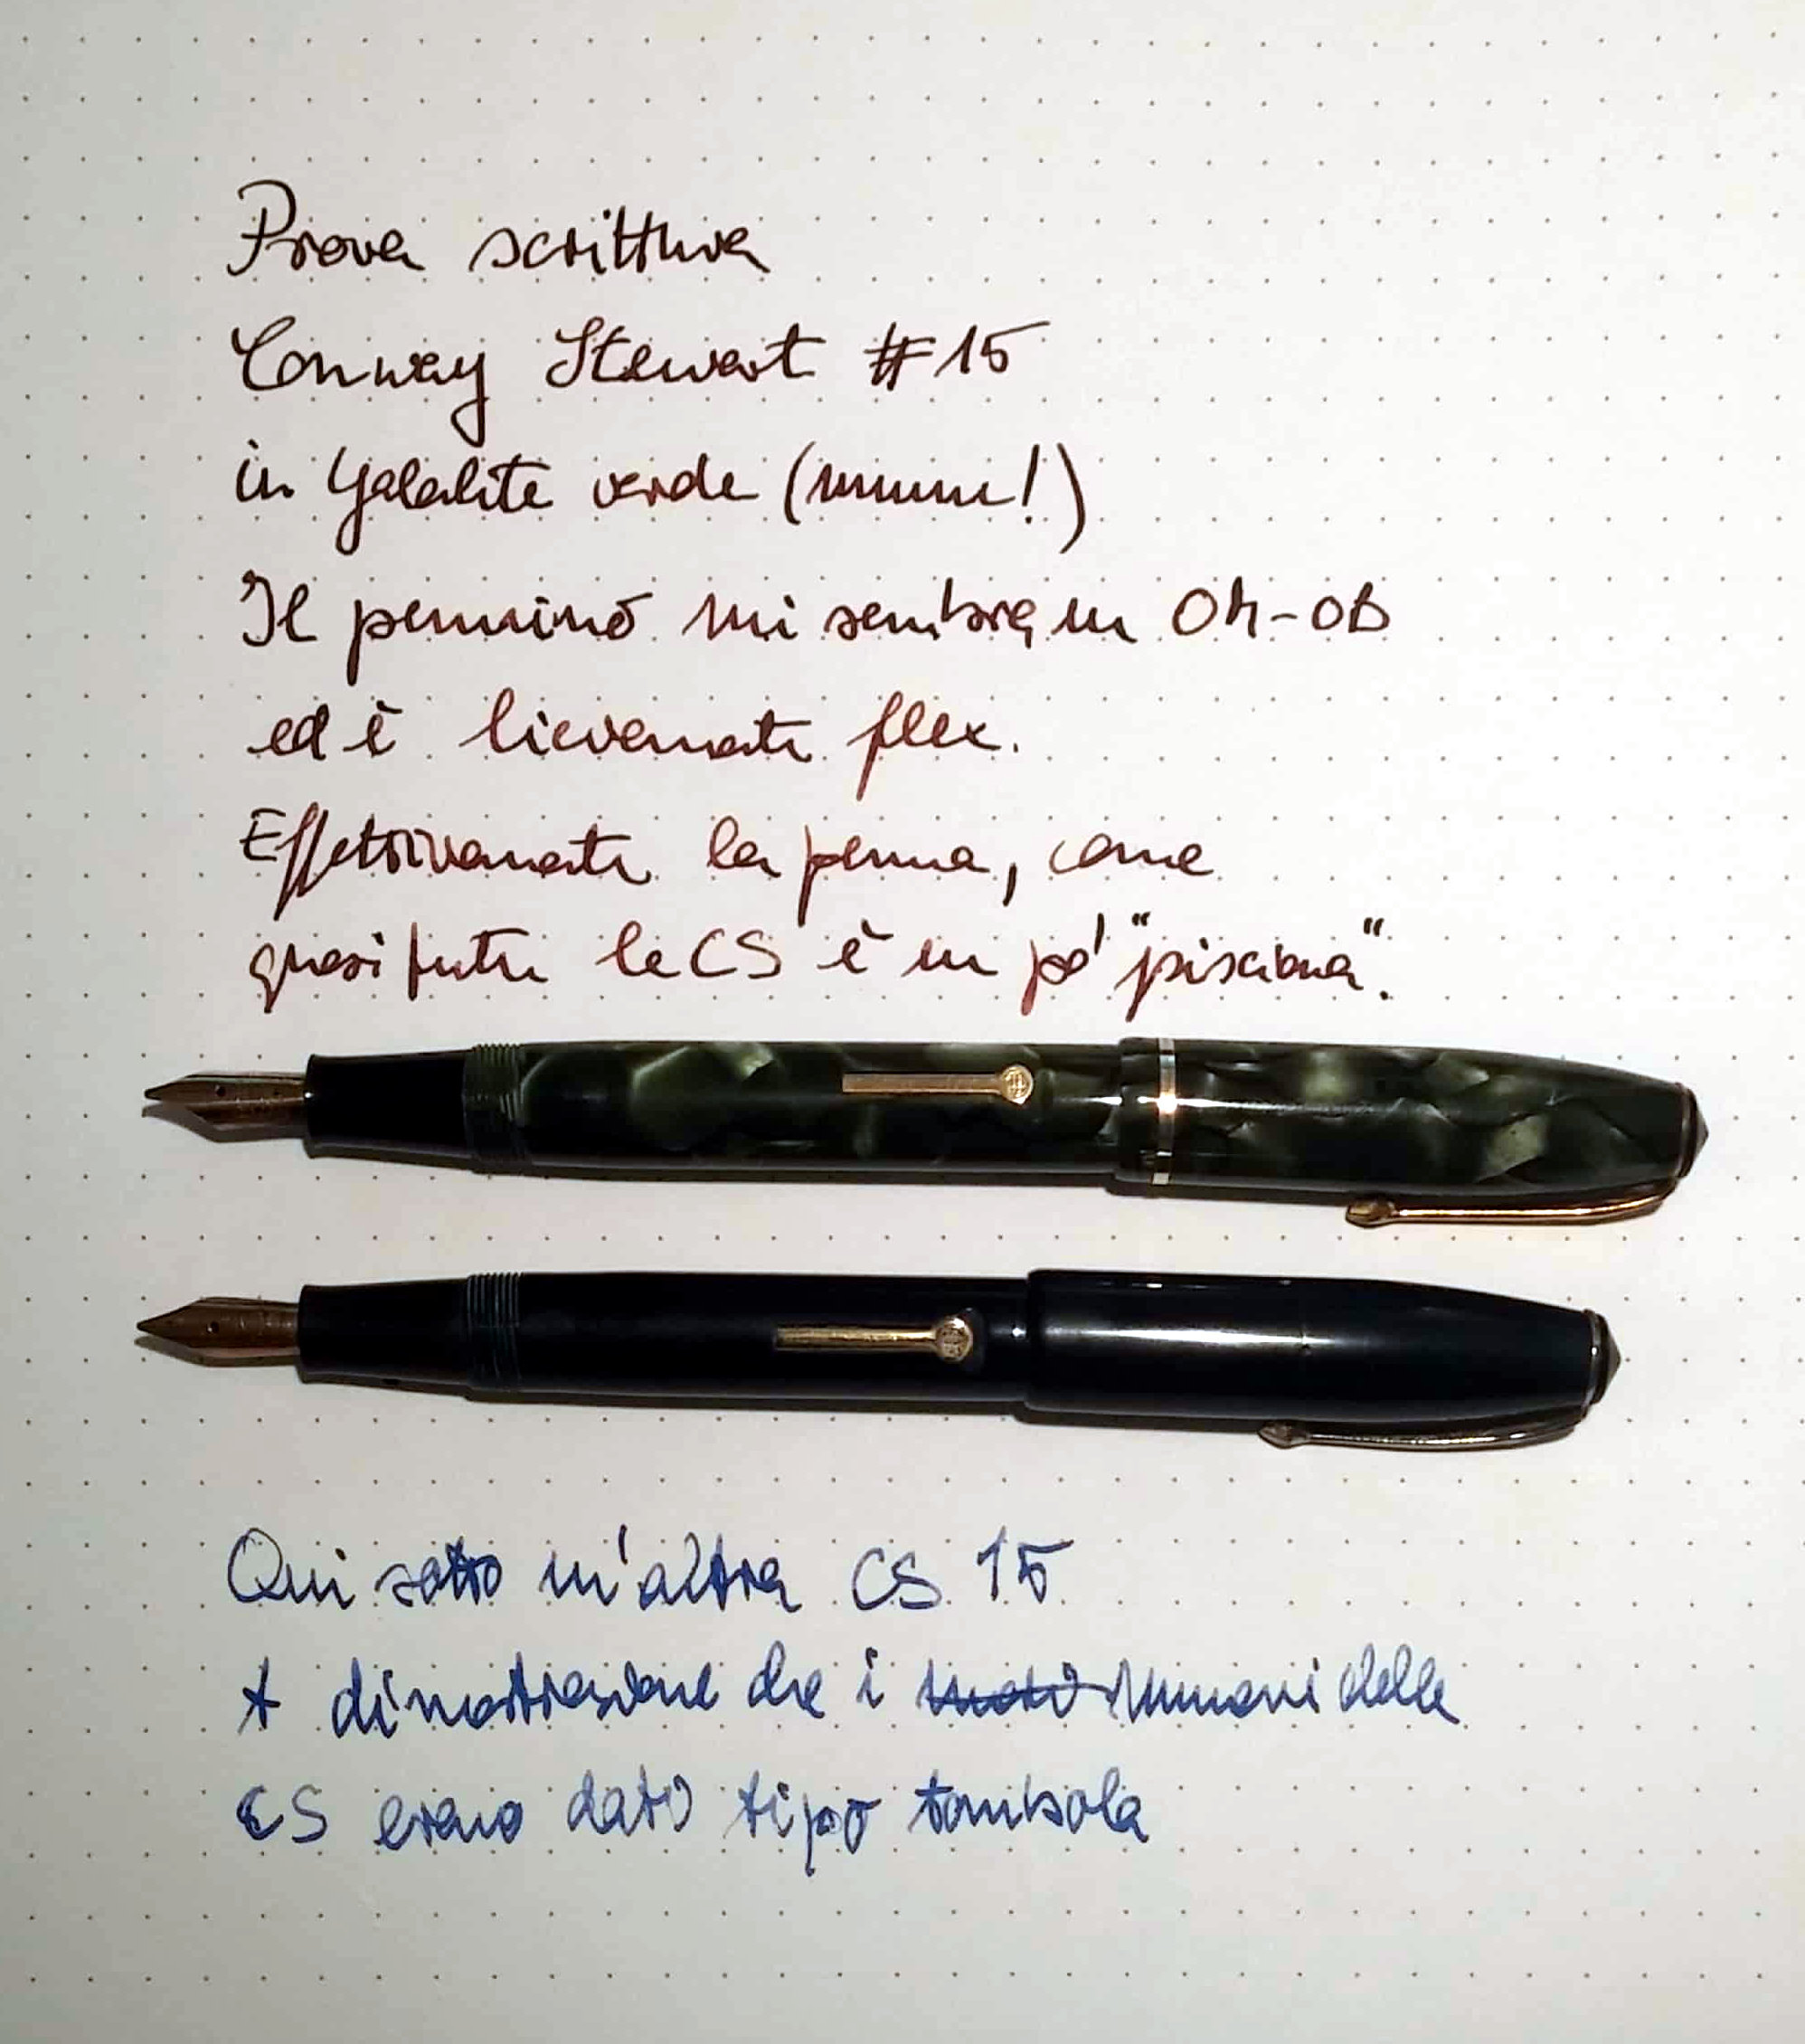 Prova scrittura
Conway Stewart #15
in galalite verde (mmmm!)
Il pennino mi sembra un OM-OB
ed è lievemente flex.
Effettivamente la penna, come
quasi tutte le CS è un po' "pisciona".
Qui sotto un'altra CS 15
A dimostrazione che i numeri delle
CS erano dati tipo tombola